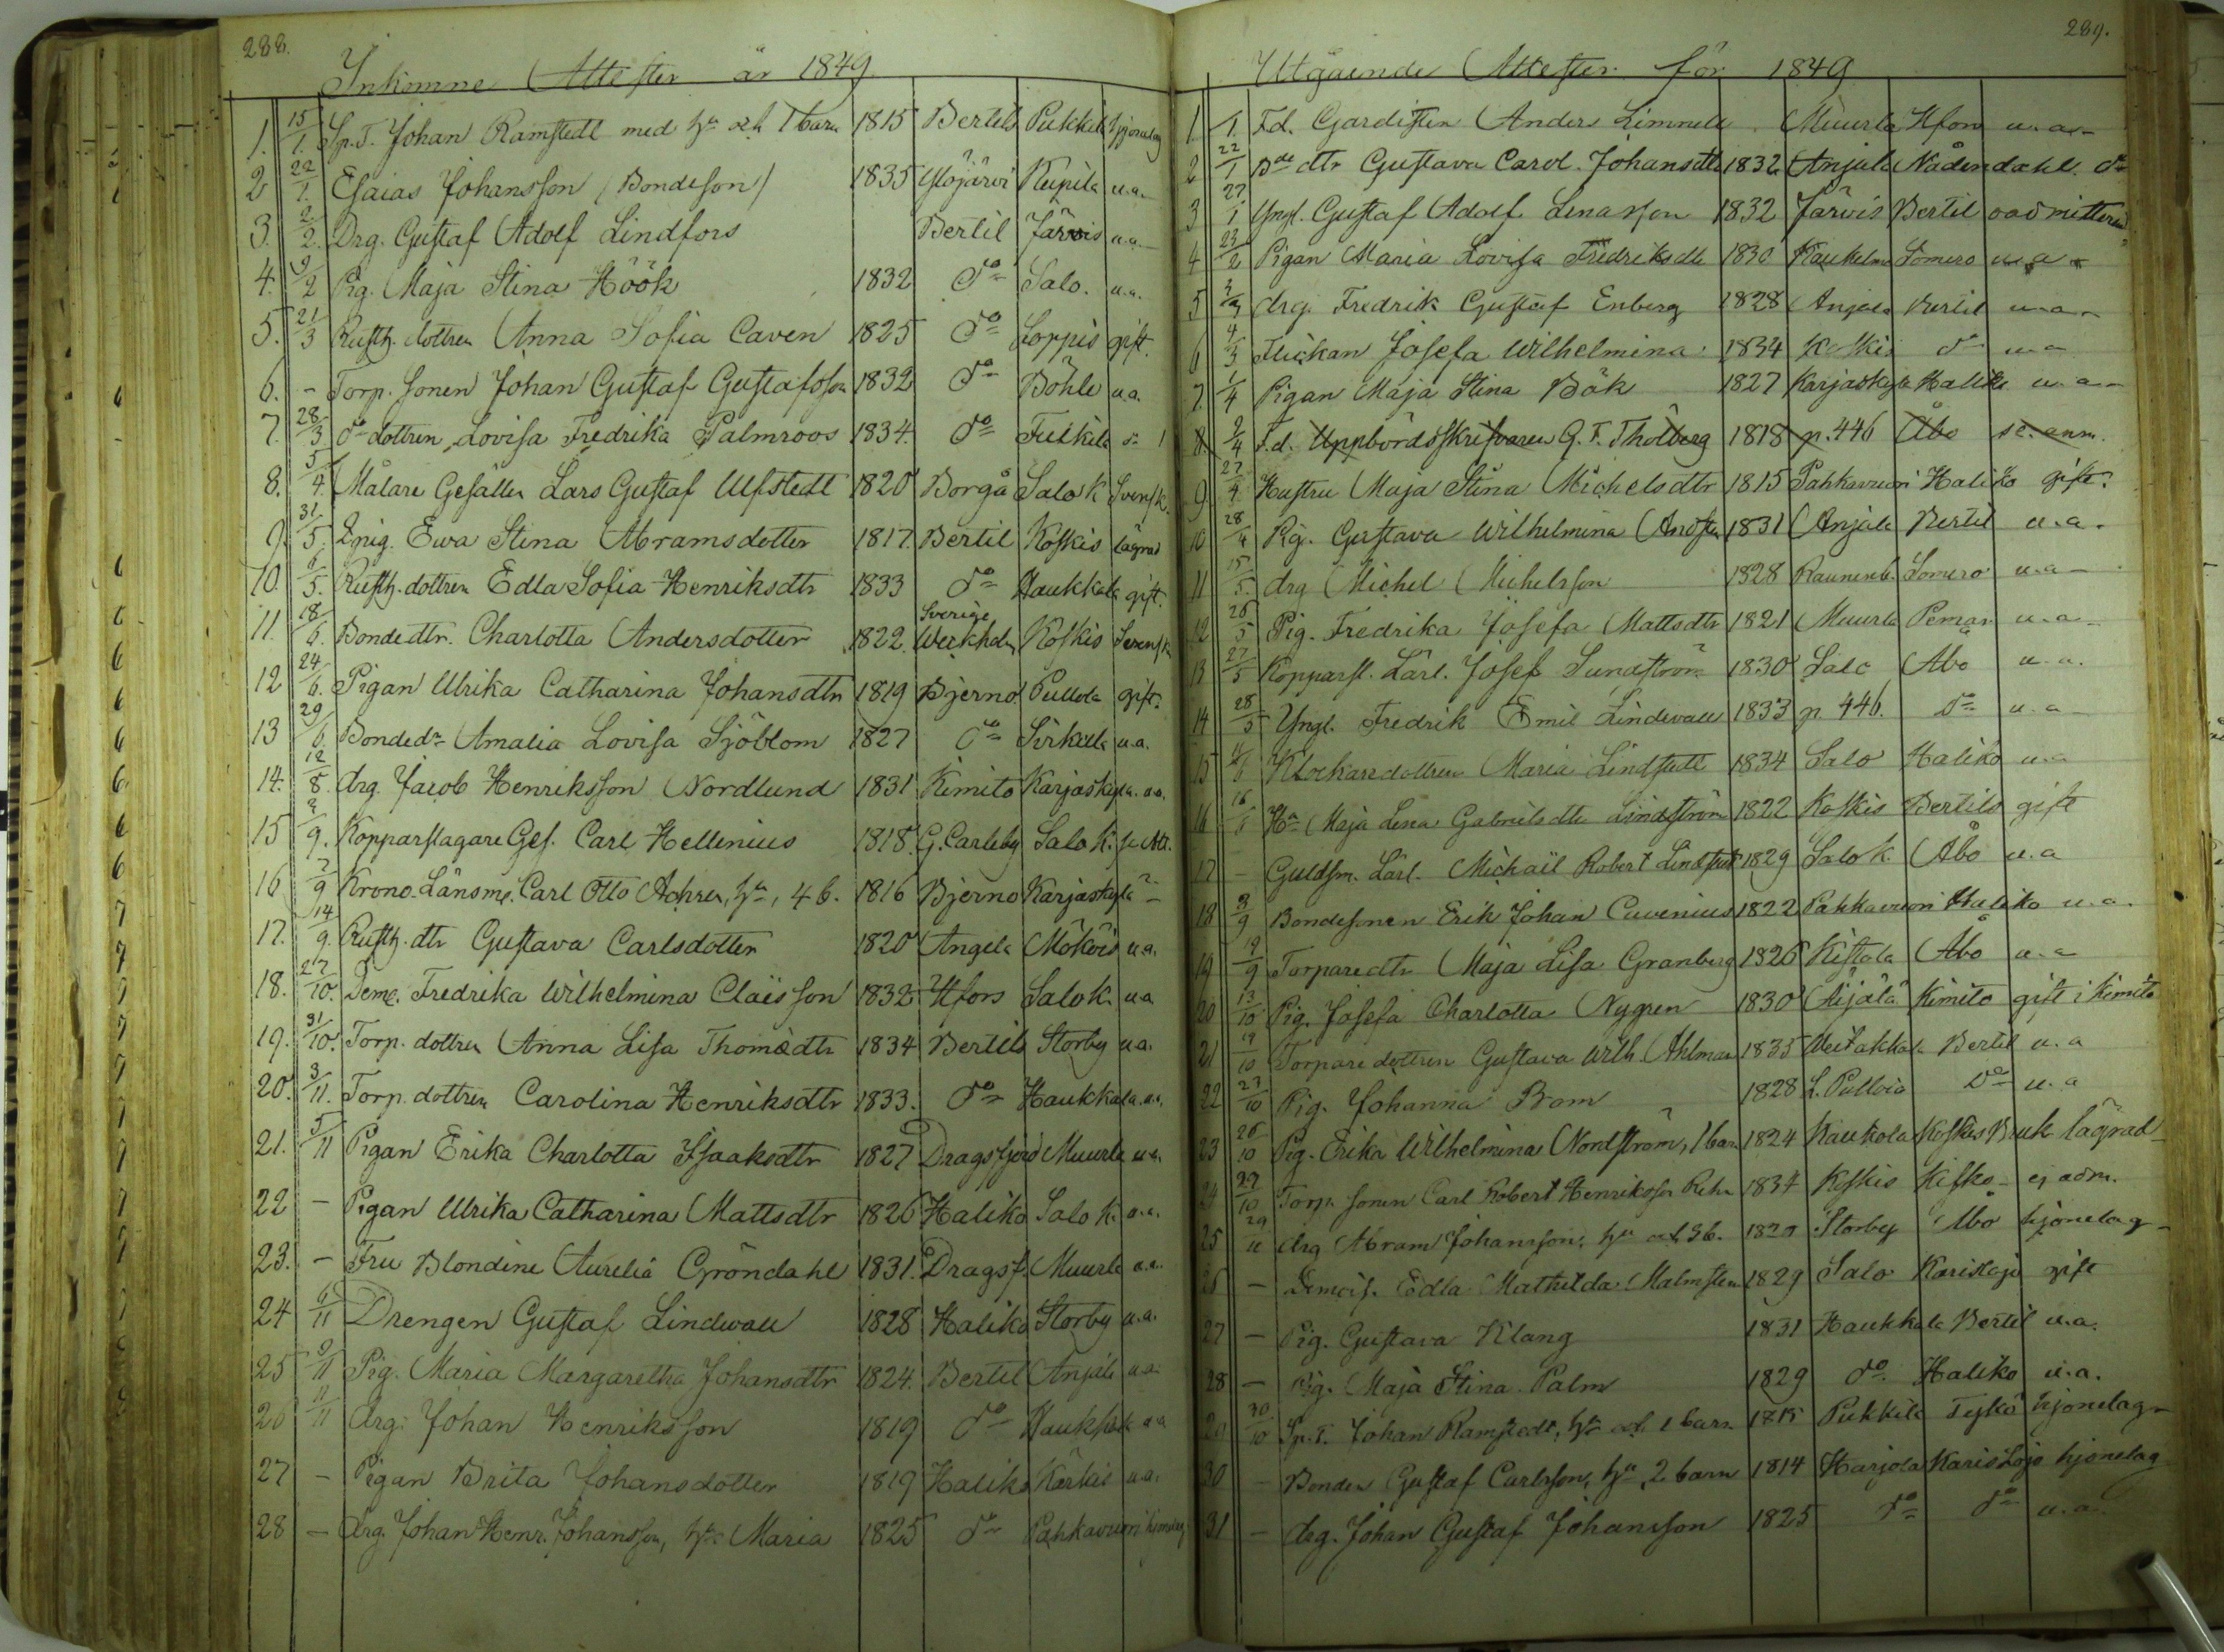 288.
Inkomne Attester år 1849.
1. 15/1. Sp. T. Johan Ramstedt med hu och 1 barn 1815 Bertils Pukkila hjonelag
2 22/1. Esaias Johansson (Bondeson) 1835 Ylöjärvi Kupila u.a.
3. 2/2. Drg. Gustaf Adolf Lindfors Bertil Järvis u.a.
4. 9/2 Pig. Maja Stina Höök 1832 do Salo. u.a.
5. 21/3 Rusth. dottren Anna Sofia Caven 1825 do Loppis gift.
6. - Torp. Sonen Johan Gustaf Gustafsson 1832 do Böhle u.a.
7. 28/3 do dottren Lovisa Fredrika Palmroos 1834. do
8. 5/4. Målare Gesällen Lars Gustaf Ulfstedt 1820 Borgå Salo K. Svensk.
9. 31/5. Enig. Ewa Stina Abramsdotter 1817. Bertil Koskis lägrad
10. 6/5. Rusth. dottren Edla Sofia Henriksdtr 1833 do Haukkala gift.
11. 18/6. Bondedtr. Charlotta Andersdotter 1822. Sverige Koskis Svensk
12 24/6. Pigan Ulrika Catharina Johansdtr 1819 Bjerno Pullola gift.
13 29/6. Bondedr Amalia Lovisa Sjöblom 1827 do Sirkula u.a.
14. 12/8. drg. Jacob Henriksson Nordlund 1831 Kimito Karjaskyla. u.a.
15 2/9. Kopparslagare Ges. Carl Hellenius 1818. G. Carleby Salo K. se Att.
16 7/9 Krono-Länsm. Carl Otto Achrén, hu, 4 b. 1816 Bjerno Karjaskylä -
17. 14/9. Rusth. dtr Gustava Carlsdotter 1820 Angela Mököis u.a.
18. 27/10. Deme. Fredrika Wilhelmina Claësson 1832 Hfors Salo K. u.a
19. 31/10. Torp. dottren Anna Lisa Thomædtr 1834 Bertils Storby u.a.
20. 3/11. Torp. dottren Carolina Henriksdtr 1833. do Haukkala. u.a.
21. 5/11 Pigan Erika Charlotta Isaaksdtr 1827 Dragsfjerd Muurla u.a.
22 - Pigan Ulrika Catharina Mattsdtr 1826 Haliko Salo K. u.a.
23. - Fru Blondine Aurelia Gröndahl 1831. Dragsf. Muurla u.a.
24 6/11 Drengen Gustaf Lindwall 1828 Haliko Storby u.a.
25 9/11 Pig. Maria Margaretha Johansdtr 1824. Bertil Anjala u.a.
26 11/11 drg. Johan Henriksson 1819 do Haukkala u.a
27 - Pigan Brita Johansdotter 1819 Haliko Kärkis u.a.
28 - drg. Johan Henr. Johansson, hu Maria 1825 do Pahkavuori hjonelag
289.
Utgående Attester för 1849
1. 1/1. F.d. Gardisten Anders Limnell Muurla Hfors u.a.
2 22/1 Bde dtr Gustava Carol. Johansdtr 1832 Anjala Nådendahl. do
3 27/1 Yngl. Gustaf Adolf Linasson 1832 Järvis Bertil oadmitterad
4 23/2 Pigan Maria Lovisa Fredriksdtr 1830 Somero u.a.
5 3/3 drg. Fredrik Gustaf Enberg 1828 Anjala Bertil u.a.
6 4/3 Flickan Josefa Wilhelmina 1834 Koskis do u.a
7. 1/4 Pigan Maja Stina Bök 1827 Karjaskyla Haliko u.a.
8. 2/4 F.d. Uppbördsskrifvaren G. F. Tholberg 1818 p. 446 Åbo se anm.
9 27/4 Hustru Maja Stina Michelsdtr 1815 Pahkavuori Haliko gift.
10 28/4 Pig. Gustava Wilhelmina Andsdr 1831 Anjala Bertil u.a.
11 15/5. drg Michel Michelsson 1828 Somero u.a
12 26/5 Pig. Fredrika Josefa Mattsdtr 1821 Muurla Pemar u.a
13 27/5 Kopparsl. Lärl. Josef Sundström 1830 Salo Åbo u.a.
14 28/5 Yngl. Fredrik Emil Lindwall 1833 p. 446. do u.a
15 11/6 Klockaredottren Maria Lindstedt 1834 Salo Haliko u.a
16 Hu Maja Lena Gabrielsdtr Lindström 1822 Koskis Bertils gift
17 - Guldsm. Lärl. Michaël Robert Lindstedt 1829 Salo K. Åbo u.a
18 8/9 Bondesonen Erik Johan Cuvenius 1822 Pahkavuori Haliko u.a.
19 12/9 Torparedtr Maja Lisa Granberg 1826 Kistola Åbo u.a
20 13/10 Pig. Josefa Charlotta Nygren 1830 Äijälä Kimito gift i Kimito
21 19/10 Torparedottren Gustava Wilh. Ahlman 1835 Bertil u.a
22 27/10 Pig. Johanna Brom 1828 L. Pullola do u.a
23 26/10 Pig. Erika Wilhelmina Nordström, 1 barn 1824 Kaukola Koskis Bruk lägrad
24 29/10 Torp. sonen Carl Robert Henriksson Rehn 1834 Koskis Kisko - ej adm.
25 29/11 drg Abram Johansson, hu och 3 b. 1820 Storby Åbo hjonelag
26 - Demois. Edla Mathilda Malmsten 1829 Salo Karislojo gift
27 - Pig. Gustava Klang 1831 Haukkala Bertil u.a.
28 - Pig. Maja Stina Palm 1829 do. Haliko u.a.
29 30/10 Sp. T. Johan Ramstedt, hu och 1 barn. 1815 Pukkila Tykö hjonelag
30 - Bonden Gustaf Carlsson, hu, 2 barn 1814 Harjola Karislojo hjonelag
31 - drg. Johan Gustaf Johansson 1825 do do u.a.